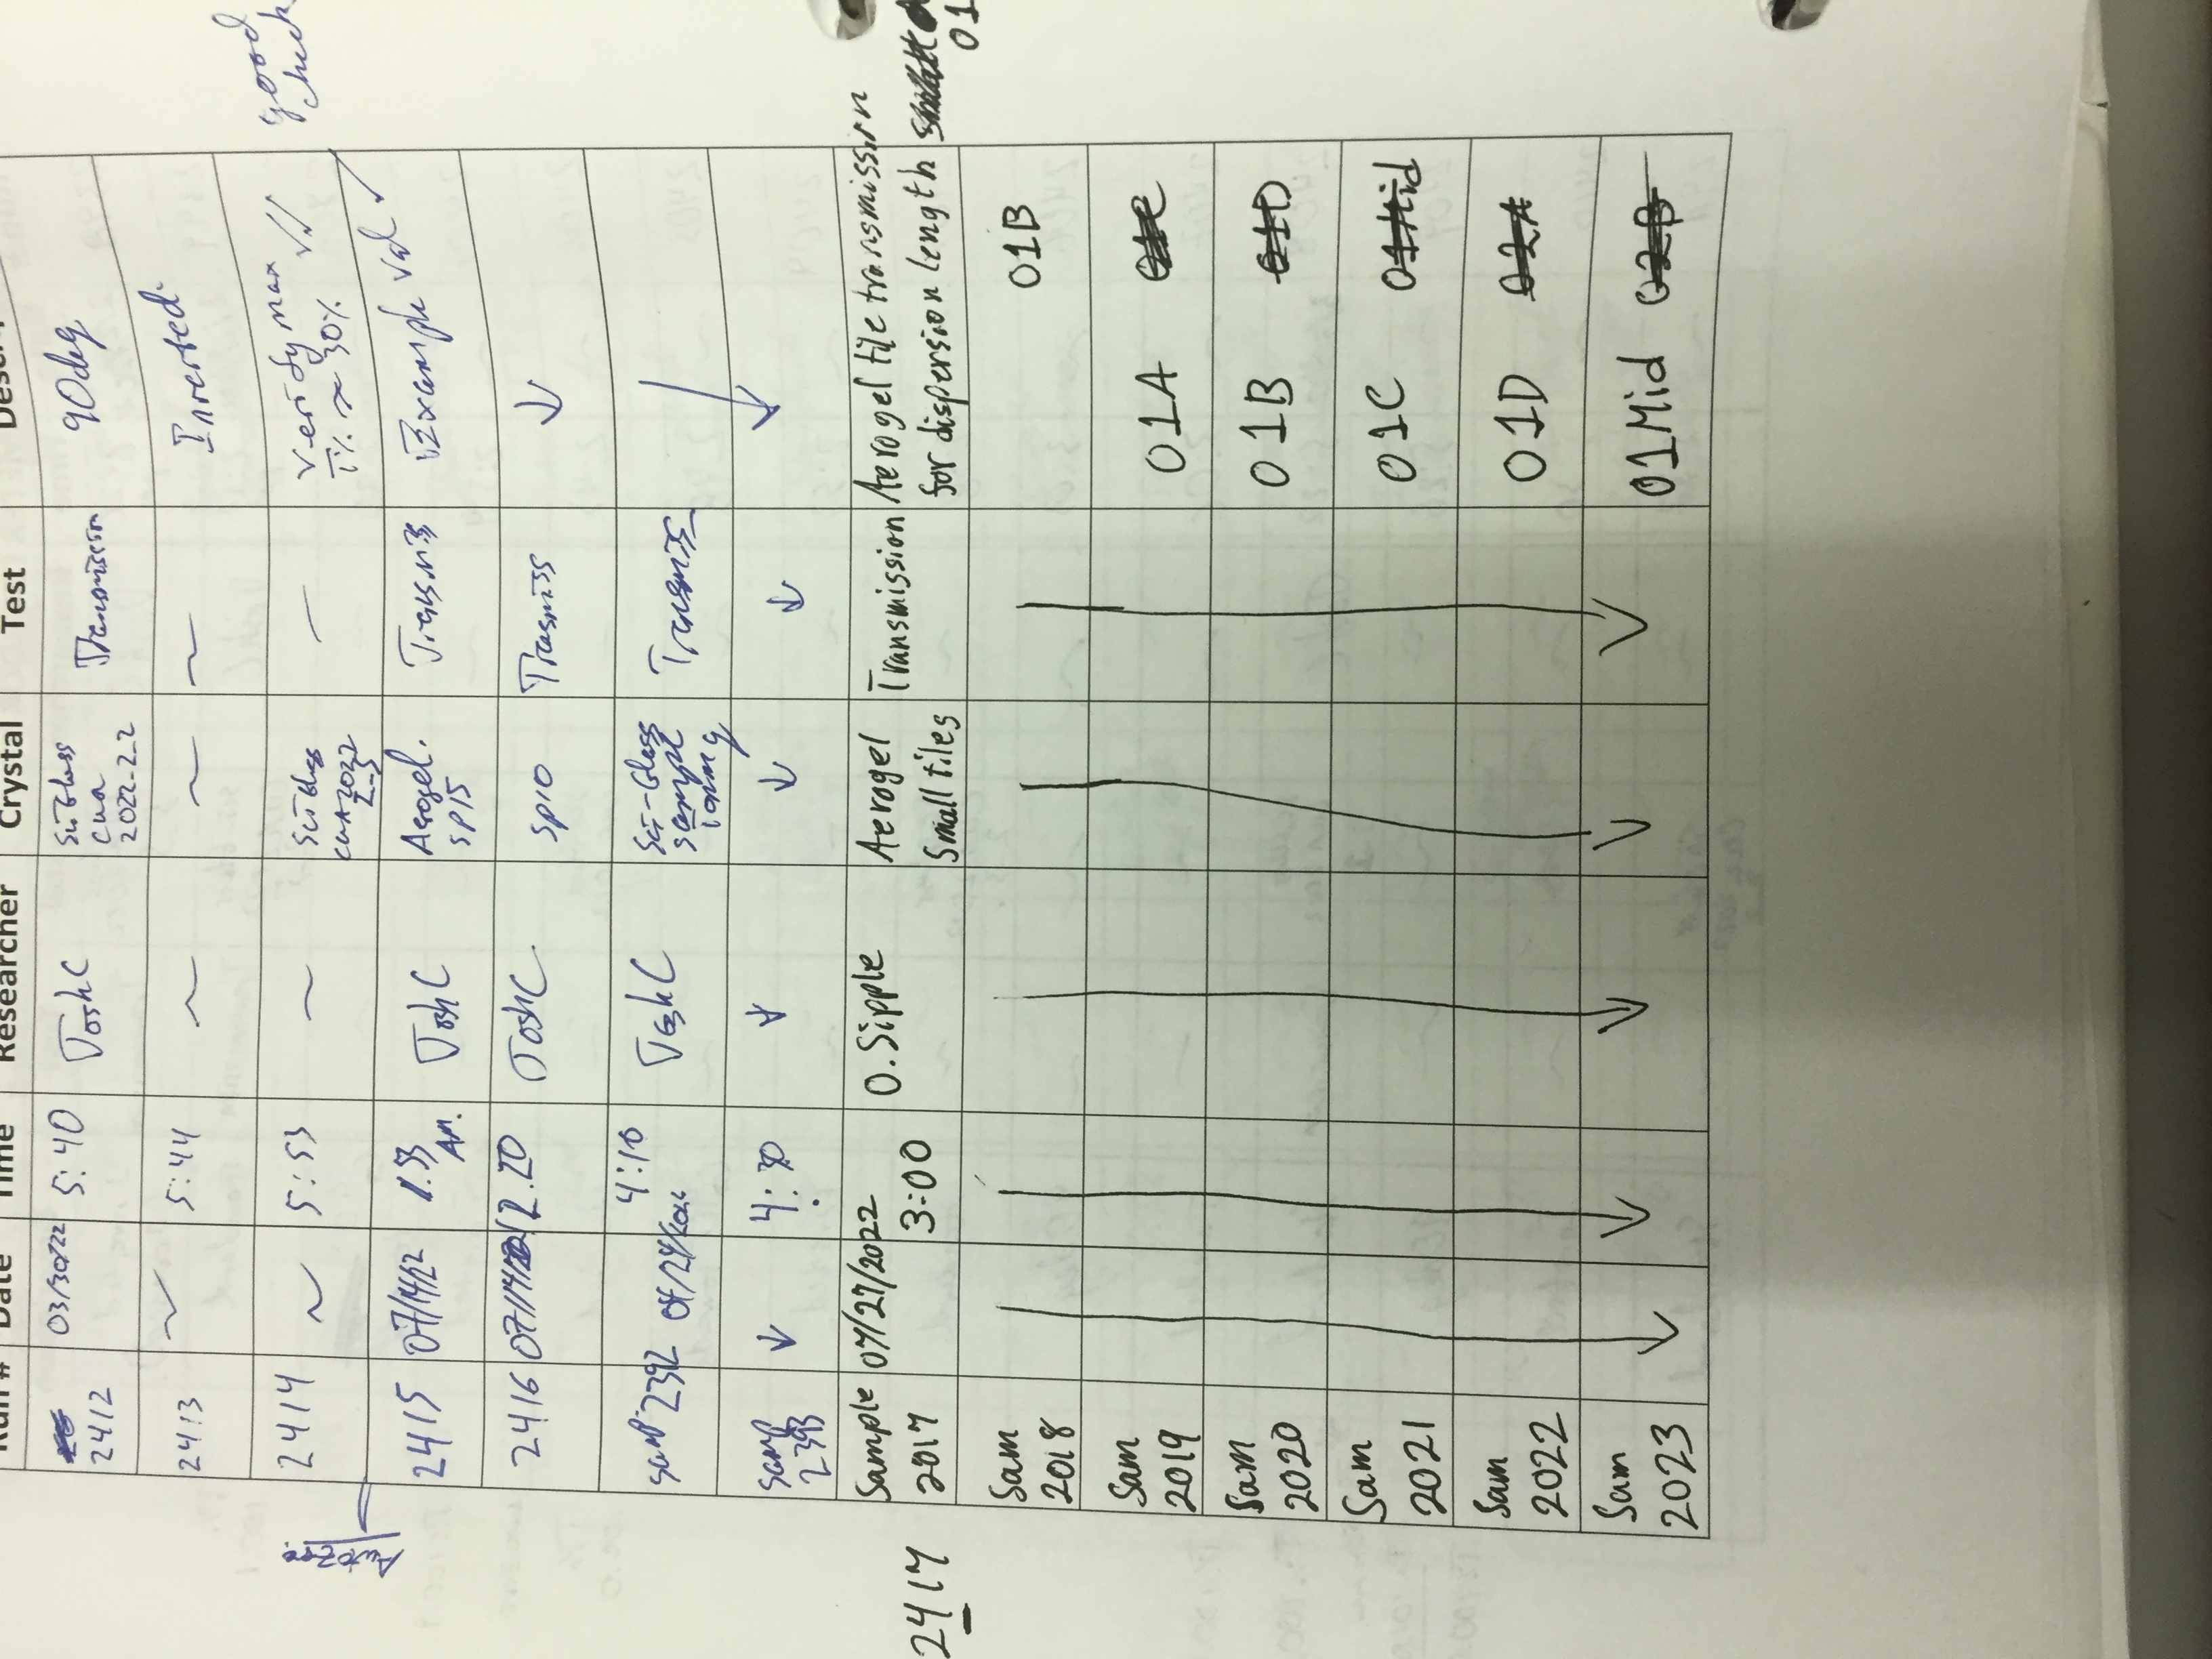 Run # Date Time Researcher Crystal Test
2412 03/30/22 5:40 JoshC SciGlass CUA 2022_2_2 Transmission 90deg
2413 ~ 5:44 ~ ~ ~ Inverted
2414 ~ 5:53 ~ SciGlass CUA2022 2_5 — Verify max T% ≈ 30% ✓✓ good check
AutoZero
2415 07/14/22 1:53 AM. JoshC Aerogel. SP15 Transmiss Example val ✓
2416 2.20 JoshC SP10 Trasmiss ↓
samp 2392 4:10 JoshC Sci-Glass sample Transmiss ↓
samp 2393 ↓ 4:30 ↓ ↓ ↓
Sample 2017 07/27/2022 3:00 O. Sipple Aerogel Small tiles Transmission Aerogel tile transmission for dispersion length
2417
01
Sam 2018 01B
Sam 2019 01A 01C
Sam 2020 01B 01D
Sam 2021 01C 01Mid
Sam 2022 01D 02A
Sam 2023 01Mid 02B